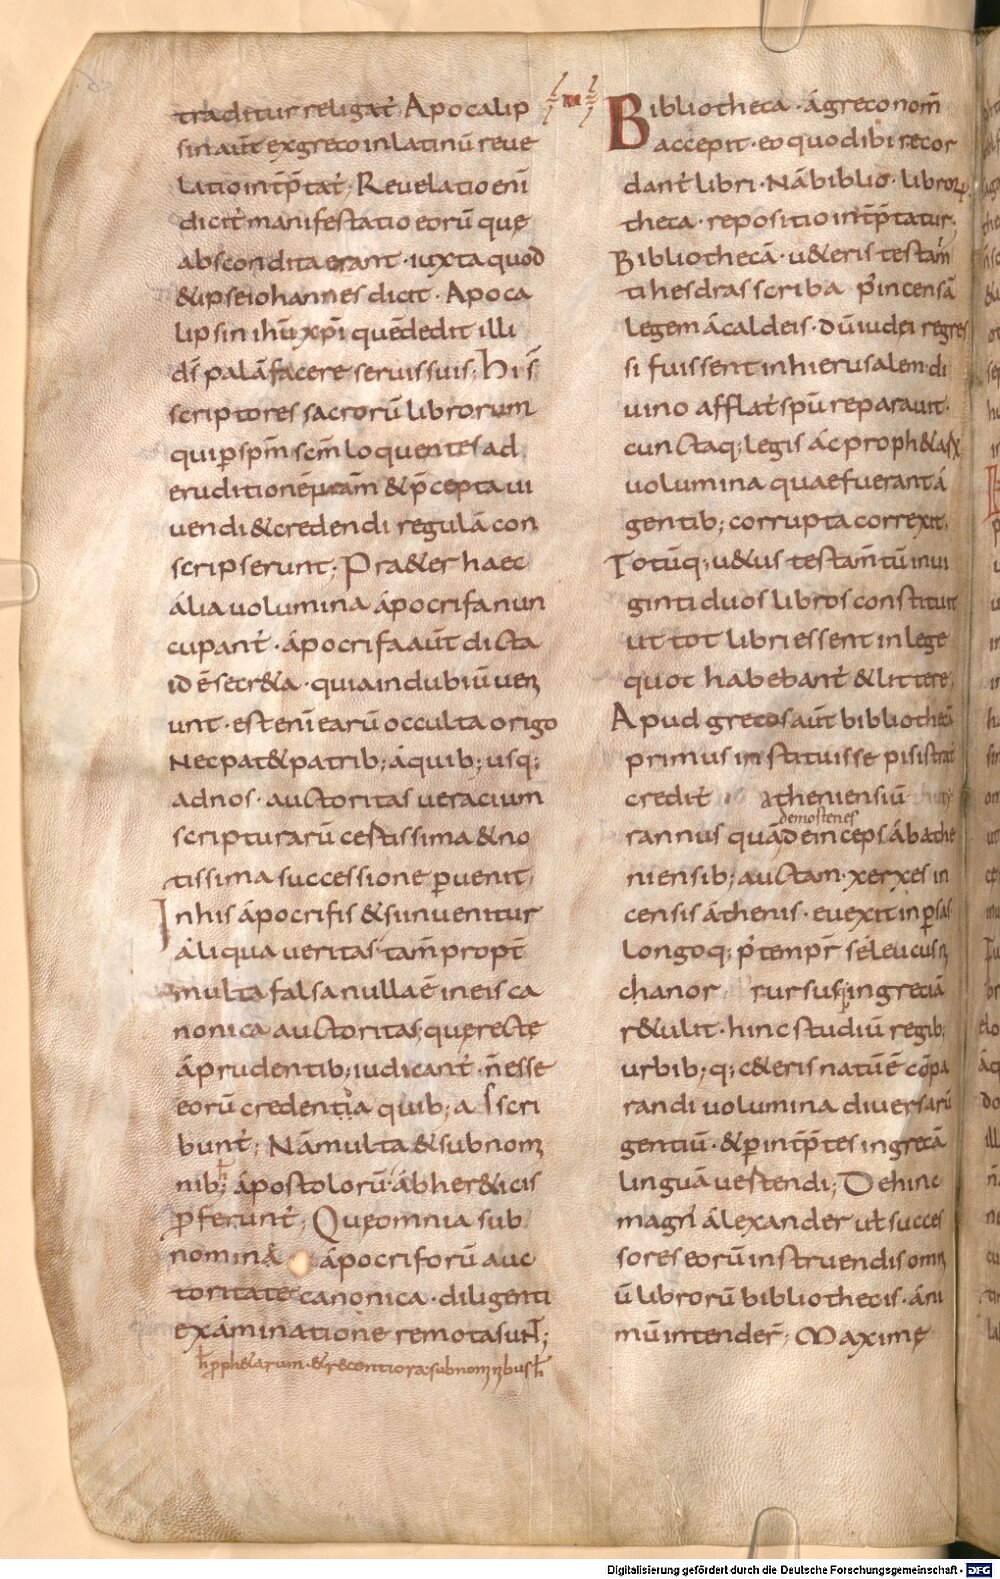 traditur religat̄ Apocalip
sin aut̄ ex greco in latinū reue
latio int̄p̄tat̄· Reuelatio enī
dicit̄ manifestatio eorū quę
abscondita erant· iuxta quod
& ipse iohannes dicit· Apoca
lipsin ihū xp̄i quē dedit illi
ds̄ palā facere seruis suis; Hi s̄
scriptores sacrorū librorum
qui ꝑ sp̄m sc̄m loquentes ad
eruditionē nr̄am & p̄cepta ui
uendi & credendi regulā con
scripserunt; Pra&er haec
alia uolumina apocrifa nun
cupant̄· apocrifa aut̄ dicta
id ē secr&a· quia in dubiū ueni
unt· est enī earū occulta origo
Nec pat& patrib; a quib; usq;
ad nos· auctoritas ueracium
scripturarū certissima & no
tissima successione ꝑuenit;
In his apocrifis & si inuenitur
aliqua ueritas· tam̄ propt̄
multa falsa nulla ē in eis ca
nonica auctoritas; que recte
a prudentib; iudicant̄ n̄ esse
eorū credentia quib; a scri
bunt̄; Nā multa & sub nomi
nib; apostolorū· ab her&icis
ꝓferunt̄; Quę omnia sub
nominā apocriforū auc
toritate canonica· diligenti
examinatione remota sunt;
h̄ ꝓph&arum· & recentiora sub nominibus h̄
· III ·
Bibliotheca· a greco nom̄
accepit· eo quod ibi recor
dant̄ libri· Nā biblio· libroꝝ
theca· repositio int̄p̄tatur;
Bibliothecā· u&eris testam̄
ti hesdras scriba p̄ incensā
legem a caldeis· dū iudei regres
si fuissent in hierusalem· di
uino afflat̄ spū reparauit·
cunctaq; legis ac proph&arū
uolumina quae fuerant a
gentib; corrupta correxit·
Totūq; u&us testam̄tū in ui
ginti duos libros constituit
ut tot libri essent in lege
quot habebant̄ & littere;
Apud grecos aut̄ bibliothecā
primus instituisse pisistrat
credit̄ atheniensiū
demostenes
rannus quā deinceps ab athe
niensib; auctam· xerxes in
censis athenis· euexit in ꝑsas
Longoq; p̄ tempr̄ seleucus ni
chanor rursusq; in greciā
r&ulit· hinc studiū regib;
urbib;q; c&eris natū ē cōpa
randi uolumina diuersarū
gentiū· & ꝑ int̄p̄tes in grecā
linguā uertendi; Dehinc
magn' alexander ul̄ succes
sores eorū instruendis omni
ū librorū bibliothecis· ani
mū intender̄; Maximę
Digitalisierung gefördert durch die Deutsche Forschungsgemeinschaft - DFG